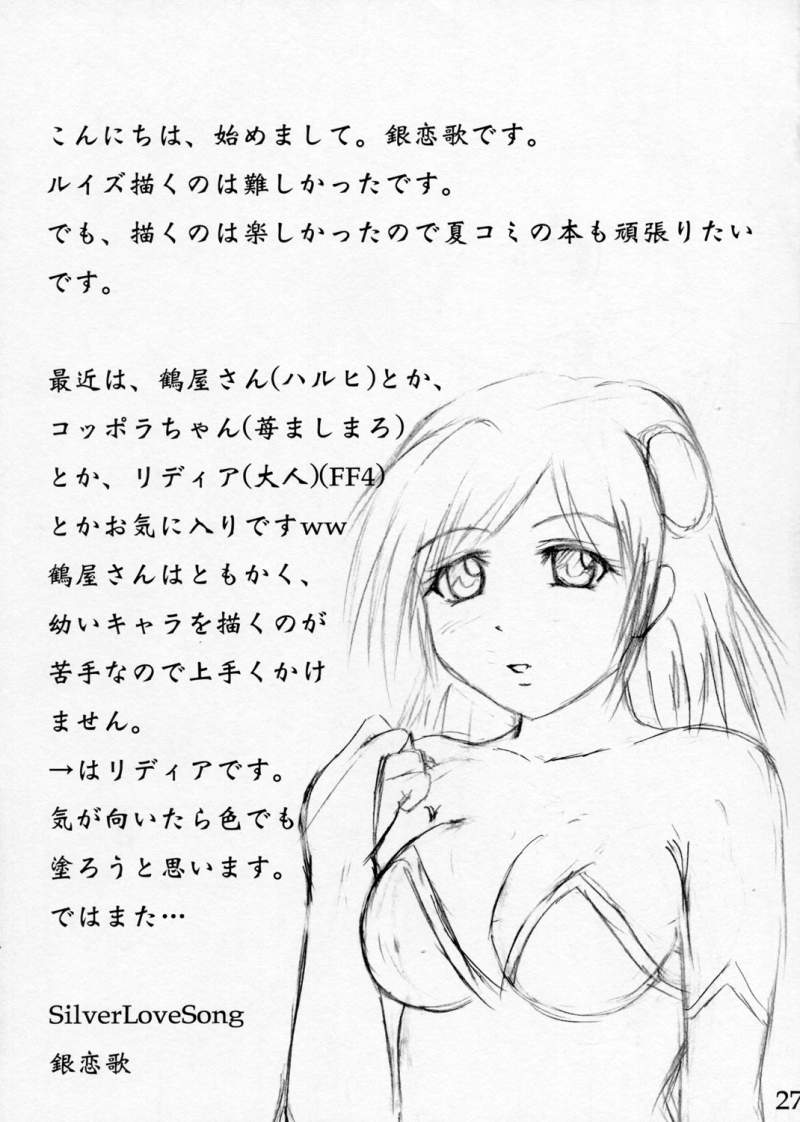 こんにちは、始めまして。銀恋歌です。
ルイズ描くのは難しかったです。
でも、描くのは楽しかったので夏コミの本も頑張りたい
です。
最近は、鶴屋さん(ハルヒ)とか、
コッポラちゃん(苺ましまろ)
とか、リディア(大人)(FF4)
とかお気に入りですww
鶴屋さんはともかく、
幼いキャラを描くのが
苦手なので上手くかけ
ません。
→はリディアです。
気が向いたら色でも
塗ろうと思います。
ではまた…
SilverLoveSong
銀恋歌
27